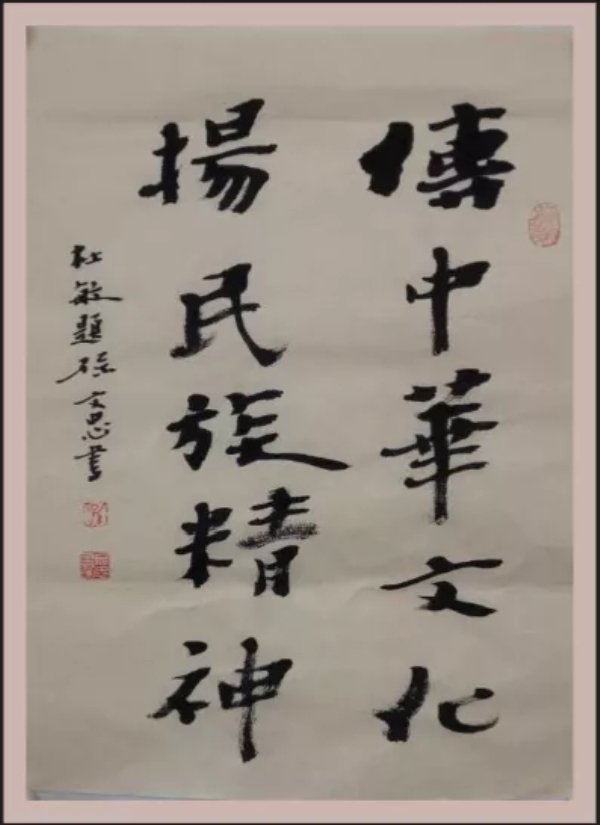 傳中華文化
揚民族精神
杜敏題 文忠書